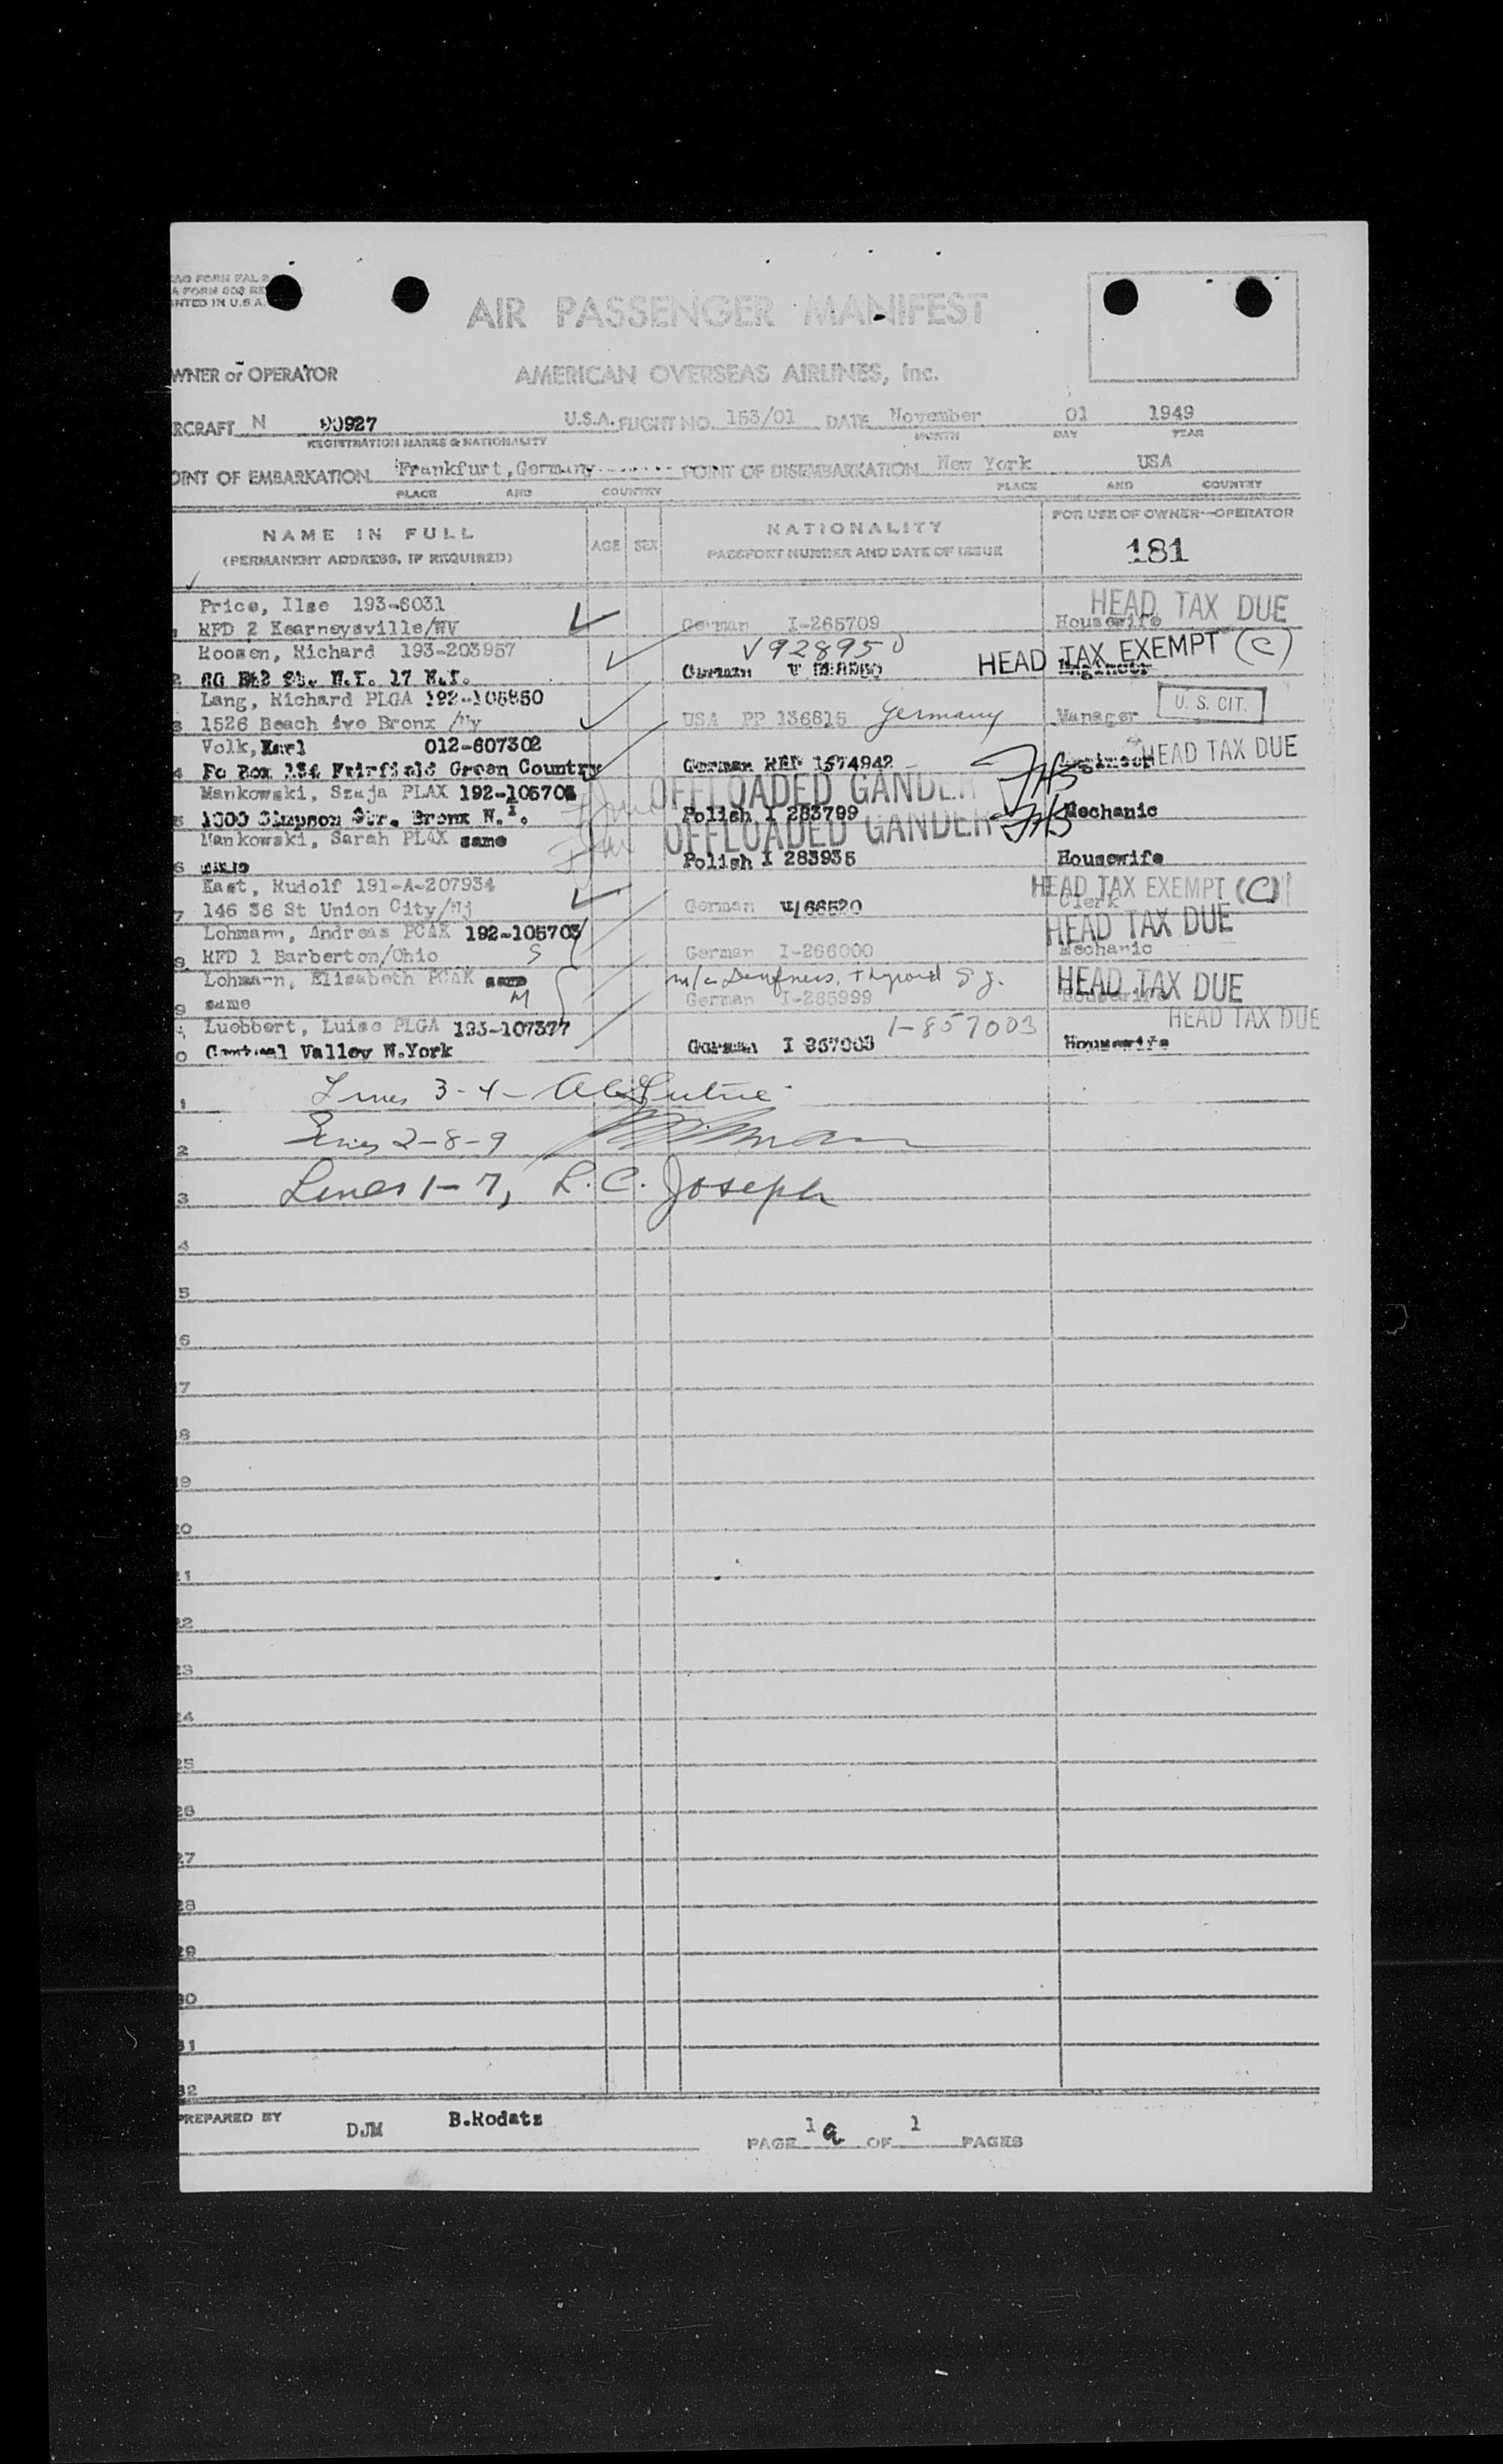 AO FORM FAL 2
A FORM 803 RE
NTED IN U.S.A.
AIR PASSENGER MANIFEST
WNER or OPERATOR AMERICAN OVERSEAS AIRLINES, Inc.
RCRAFT N 90927 U.S.A. FLIGHT NO. 153/01 DATE November 01 1949
REGISTRATION MARKS & NATIONALITY MONTH DAY YEAR
OINT OF EMBARKATION Frankfurt,Germany POINT OF DISEMBARKATION New York USA
PLACE AND COUNTRY PLACE AND COUNTRY
NAME IN FULL
(PERMANENT ADDRESS, IF REQUIRED)
AGE SEX
NATIONALITY
PASSPORT NUMBER AND DATE OF ISSUE
FOR USE OF OWNER—OPERATOR
181
Price, Ilse 193-6031 HEAD TAX DUE
1 RFD 2 Kearneysville/WV German I-265709 Housewife
Roosen, Richard 193-203957 V928950 HEAD TAX EXEMPT (C)
2 St. N.Y. 17 N.Y. German Engineer
Lang, Richard PLGA 192-105850 U. S. CIT.
3 1526 Beach Ave Bronx /Ny USA PP 136815 Germany Manager
Volk, Karl 012-607302 HEAD TAX DUE
4 Po Box 134 Fairfield Green Country German REP 1574942 Engineer
Mankowski, Szaja PLAX 192-105704 OFFLOADED GANDER
5 1000 Simpson Str. Bronx N.Y. Polish I 283799 Mechanic
Mankowski, Sarah PLAX same OFFLOADED GANDER
6 Polish I 283935 Housewife
Kast, Rudolf 191-A-207934 HEAD TAX EXEMPT (C)
7 146 36 St Union City/Nj German 66520 Clerk
Lohmann, Andreas PCAK 192-105703 HEAD TAX DUE
8 RFD 1 Barberton/Ohio S German I-266000 Mechanic
Lohmann, Elisabeth PCAK same m/c Deafness, thyroid S J. HEAD TAX DUE
9 same M German I-265999 Housewife
Luebbert, Luise PLGA 193-107377 I-857003 HEAD TAX DUE
0 Central Valley N.York German I 857003 Housewife
1 Lines 3-4-
2 Lines 2-8-9
3 Lines 1-7, L.C. Joseph
4
5
6
7
18
19
20
21
22
23
24
25
26
27
28
29
30
31
32
PREPARED BY DJM B.Rodatz PAGE 1 a OF 1 PAGES